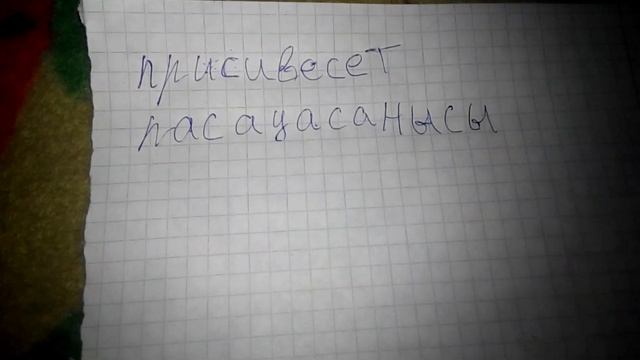 присивесет
пасацасанысы